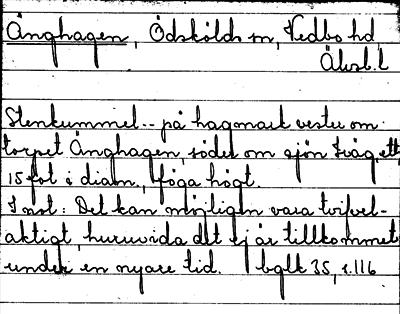 Änghagen, Ödskölds sn, Vedbo hd,
Älvsb.l
Stenkummel -- på hagmark vester om
torpet Änghagen, söder om sjön Iväg, ett,
15 fot i diam., föga högt.
Inst: Det kan möjligen vara tvifvel-
aktigt, huruvida det ej är tillkommet
under en nyare tid. bglk 35, s.116